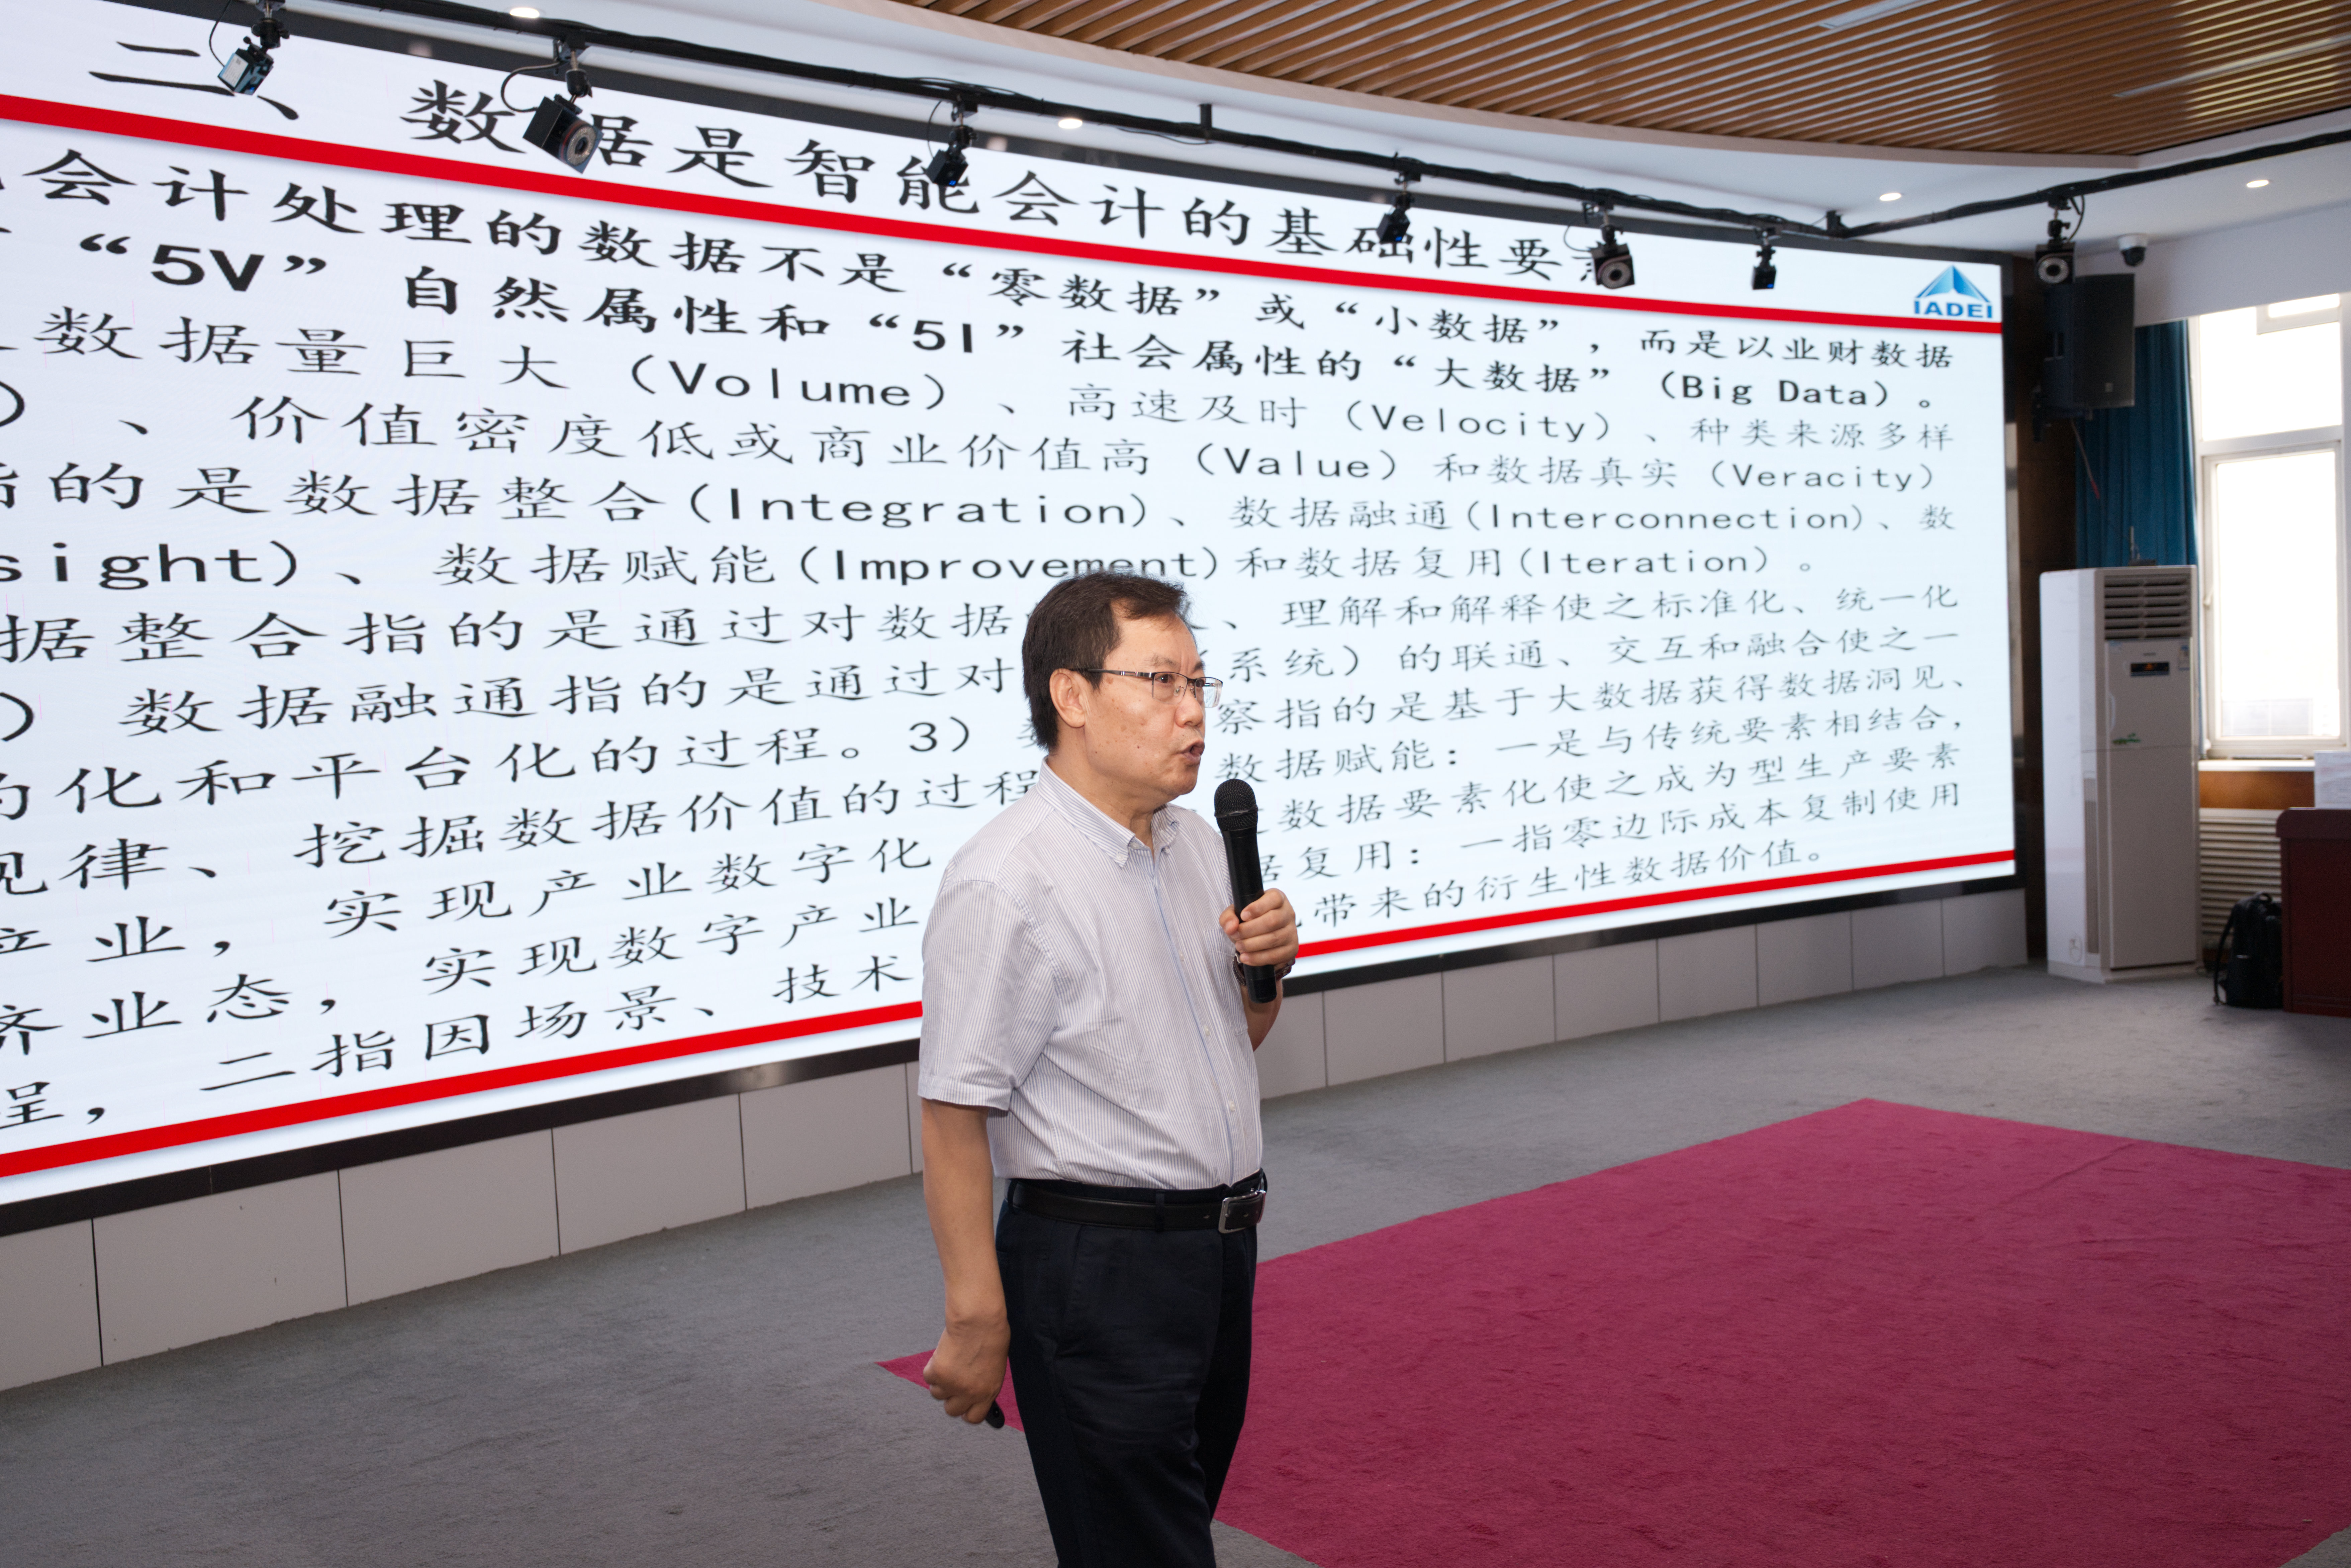 二、数据是智能会计的基础性要
会计处理的数据不是“零数据”或“小数据”，而是以业财数据
“5V”自然属性和“5I”社会属性的“大数据”（Big Data）。
数据量巨大（Volume）、高速及时（Velocity）、种类来源多样
）、价值密度低或商业价值高（Value）和数据真实（Veracity）
指的是数据整合(Integration)、数据融通(Interconnection)、数
sight)、数据赋能(Improvement)和数据复用(Iteration)。
据整合指的是通过对数据、理解和解释使之标准化、统一化
）数据融通指的是通过对系统）的联通、交互和融合使之一
化和平台化的过程。3）察指的是基于大数据获得数据洞见、
规律、挖掘数据价值的过程数据赋能：一是与传统要素相结合，
产业，实现产业数字化数据要素化使之成为型生产要素
济业态，实现数字产业据复用：一指零边际成本复制使用
程，二指因场景、技术带来的衍生性数据价值。
IADEI